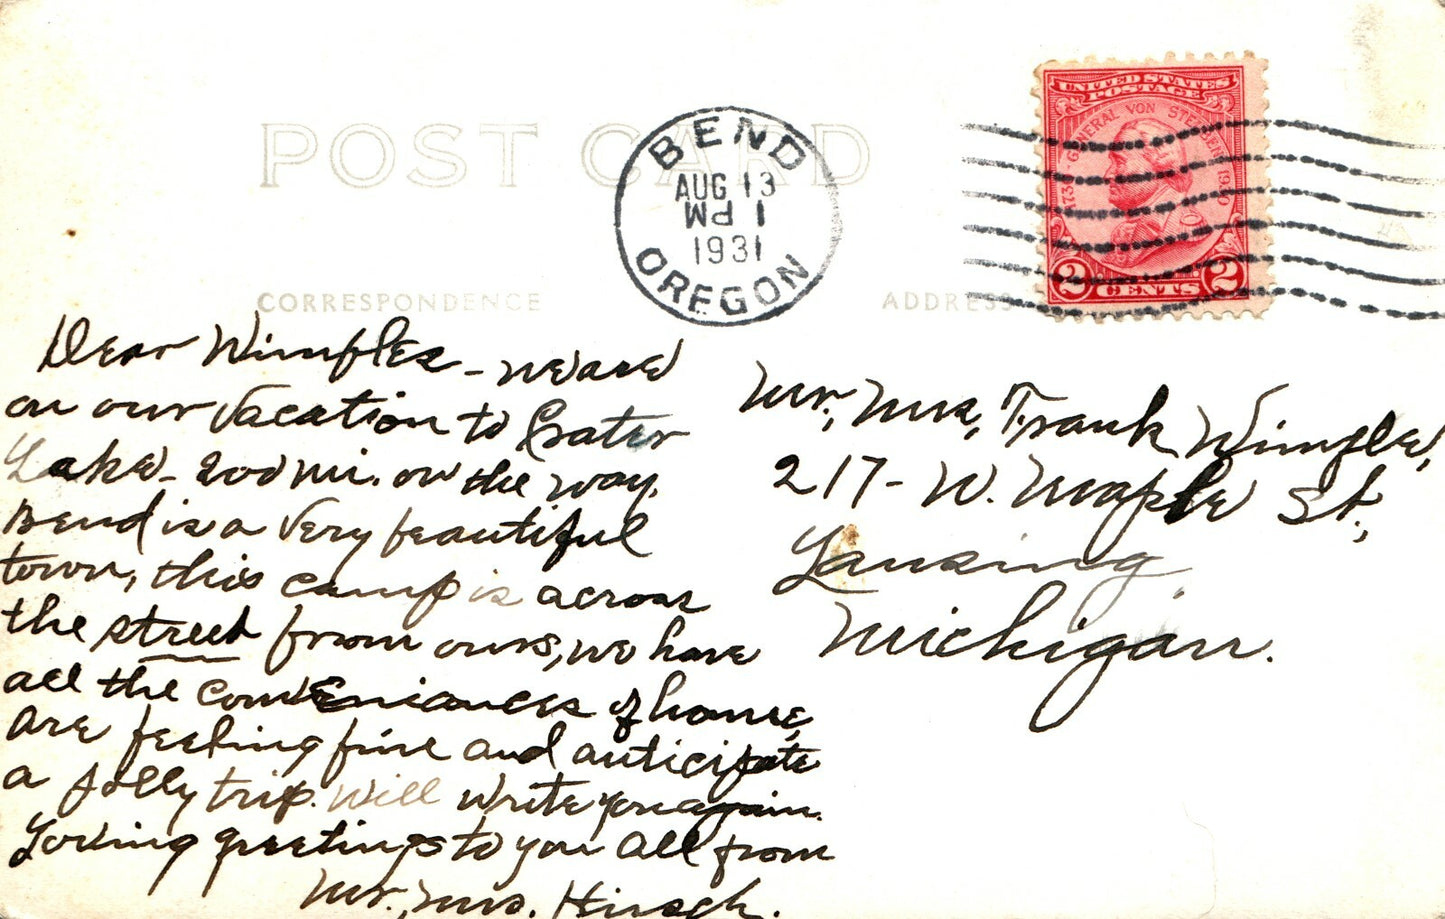 POST CARD
BEND
AUG 13
1 PM
1931
OREGON
UNITED STATES
POSTAGE
1730 GENERAL VON STEUBEN 1930
2 CENTS 2
CORRESPONDENCE
ADDRESS
Dear Wimples - we are
on our Vacation to Crater
Lake - 200 mi. on the way.
Bend is a very beautiful
town, this camp is across
the street from ours, we have
all the conveniences of home,
are feeling fine and anticipate
a jolly trip. Will write you again.
Loving greetings to you all from
Mr., Mrs. Hirsch.
Mr., Mrs, Frank Wimple,
217 - W. Maple St.,
Lansing,
Michigan.